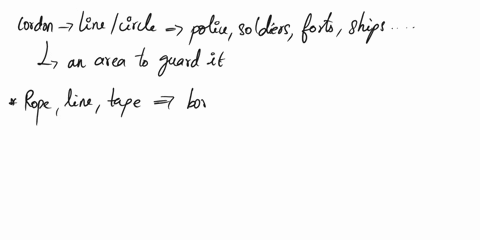 cordon → line/circle ⇒ police, soldiers, forts, ships.....
↳ an area to guard it
* Rope, line, tape ⇒ bor